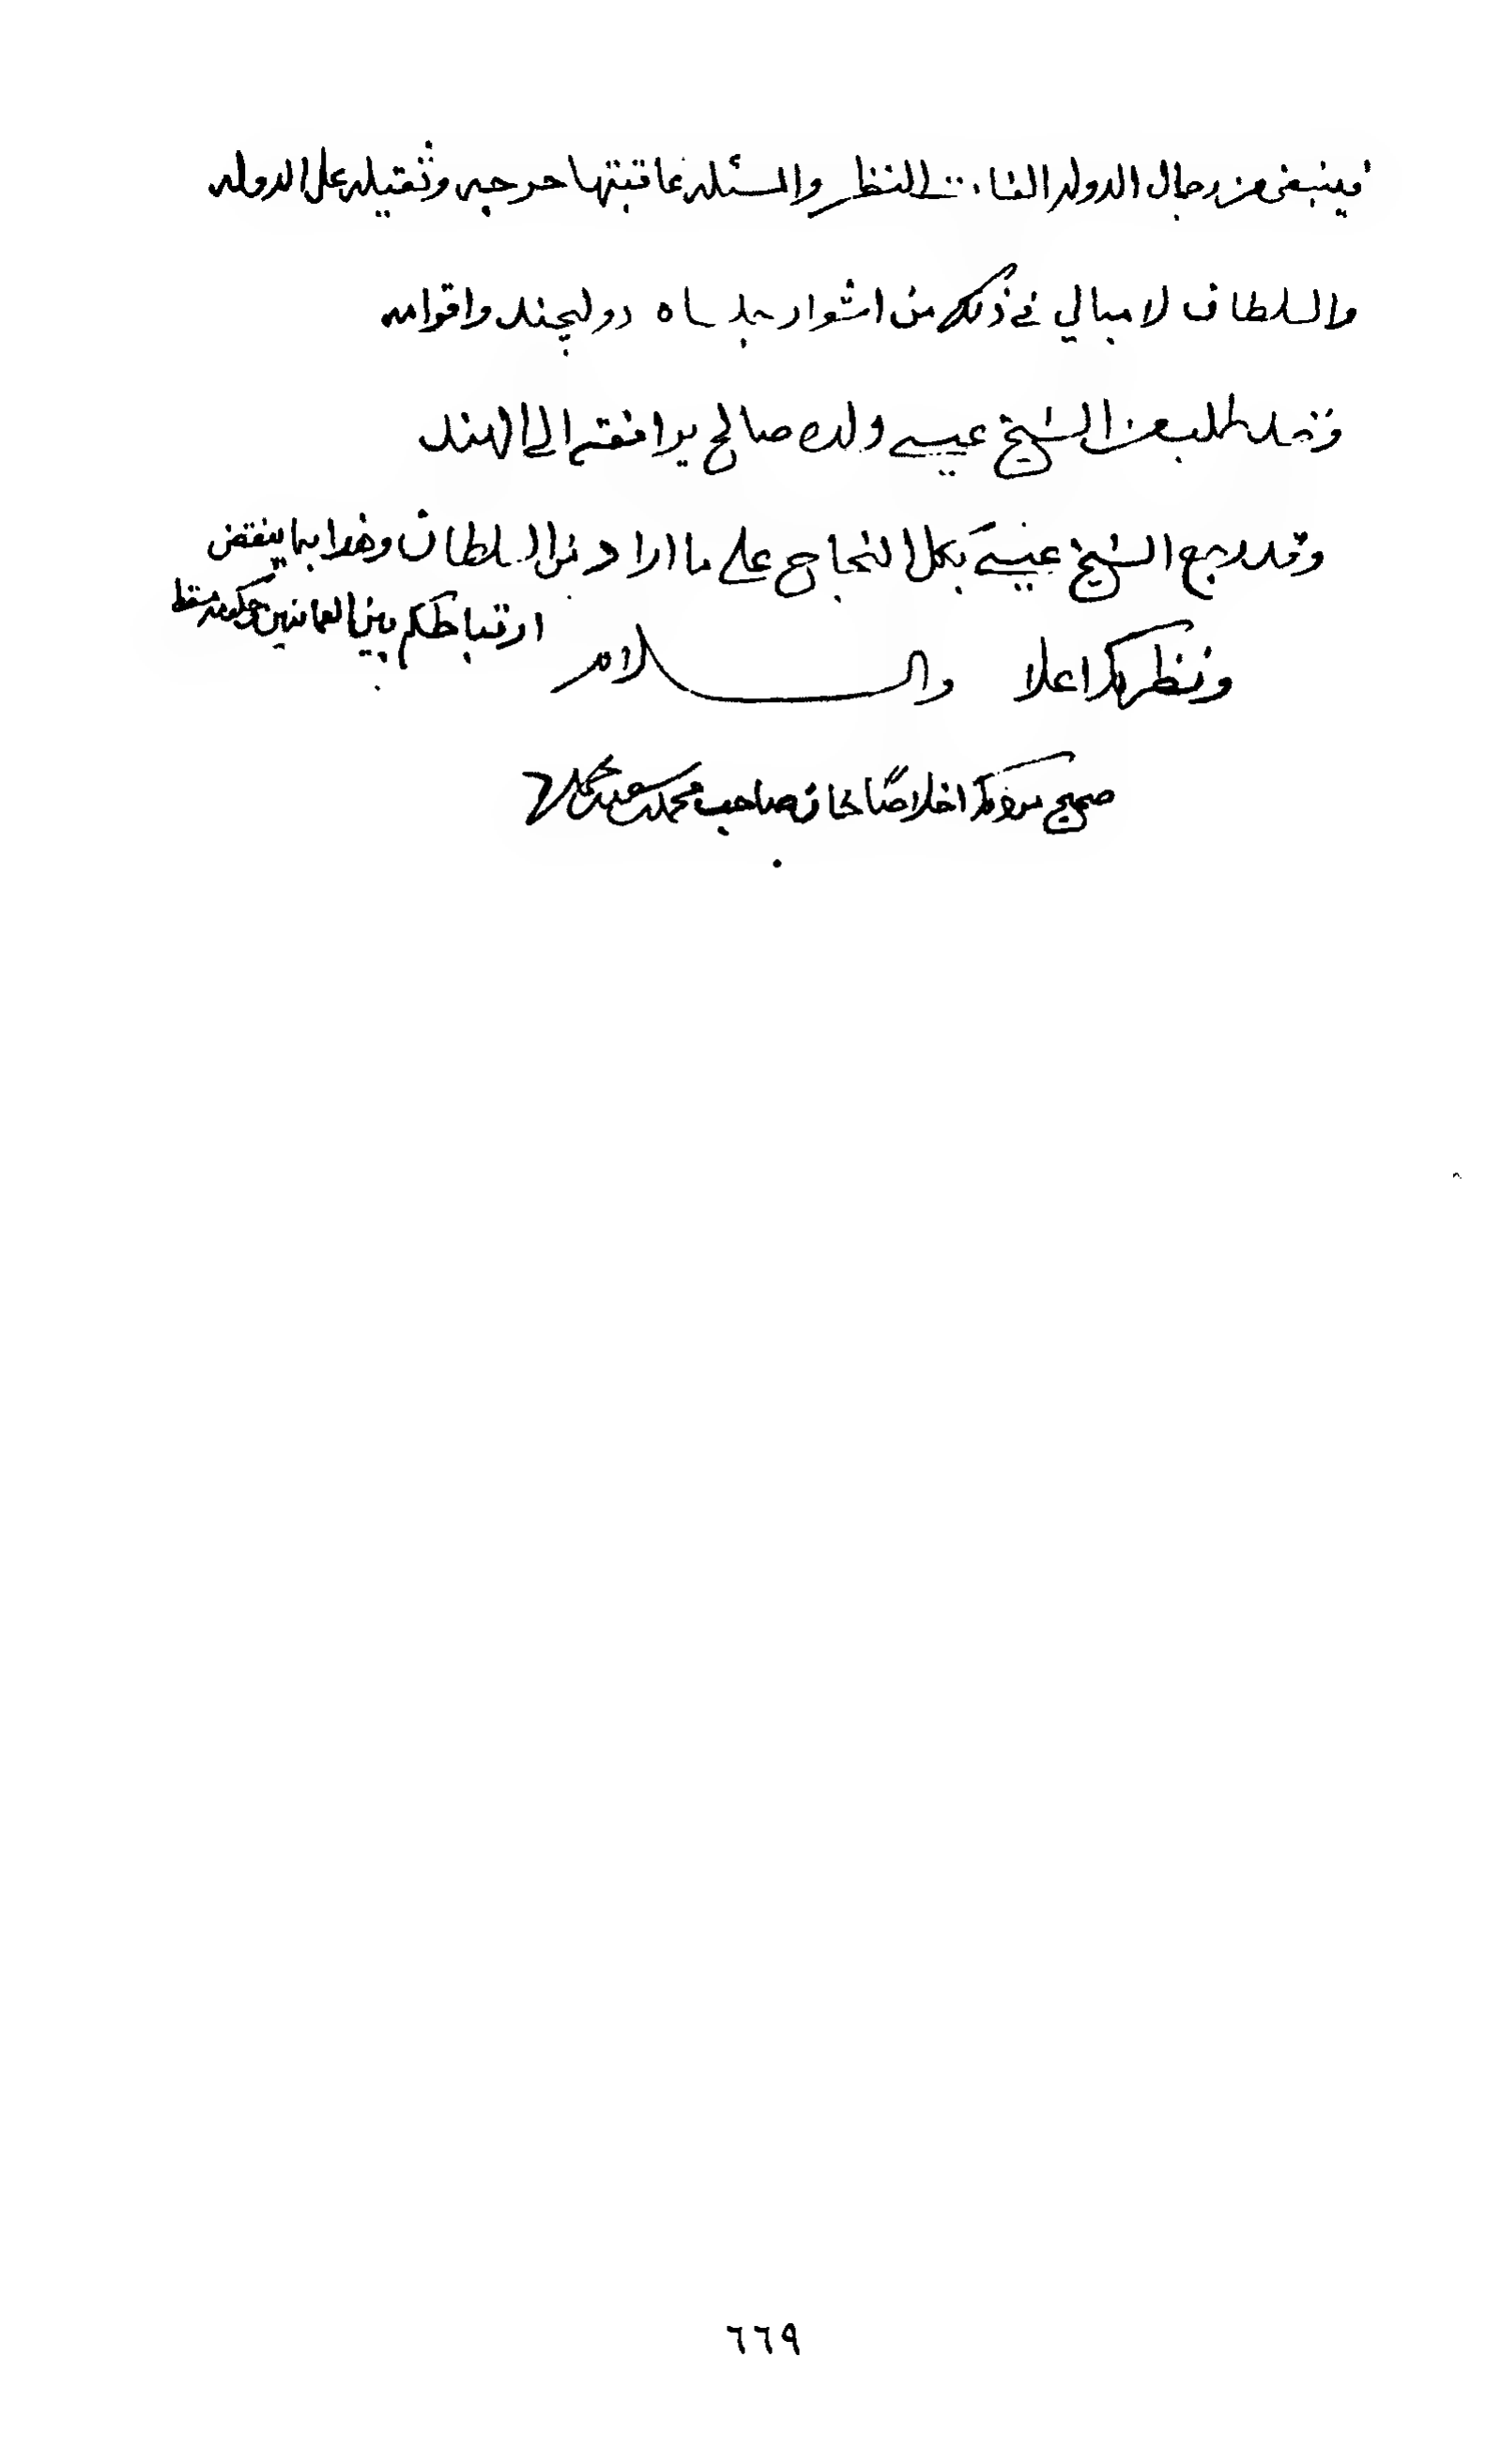 فينبغي من رجال الدوله الفا... النظر والمسئله عاقبتها حرجه وثقيله على الدوله
والسلطان لا مبالي في ذلك من اشوار جلساه دوليچند واقوامه
وقد طلب من الشيخ عيسى ولده صالح يرافقه الى الهند
وقد رجع الشيخ عيسى بكل النجاح على ما اراد من السلطان وهذا بما ينقض
ارتباطكم بين العمانيين وحكومة مسقط
ونظركم اعلا والسلام
صحيح مودكم اخلاصًا خان صاحب محمد سعيد
٦٦٩